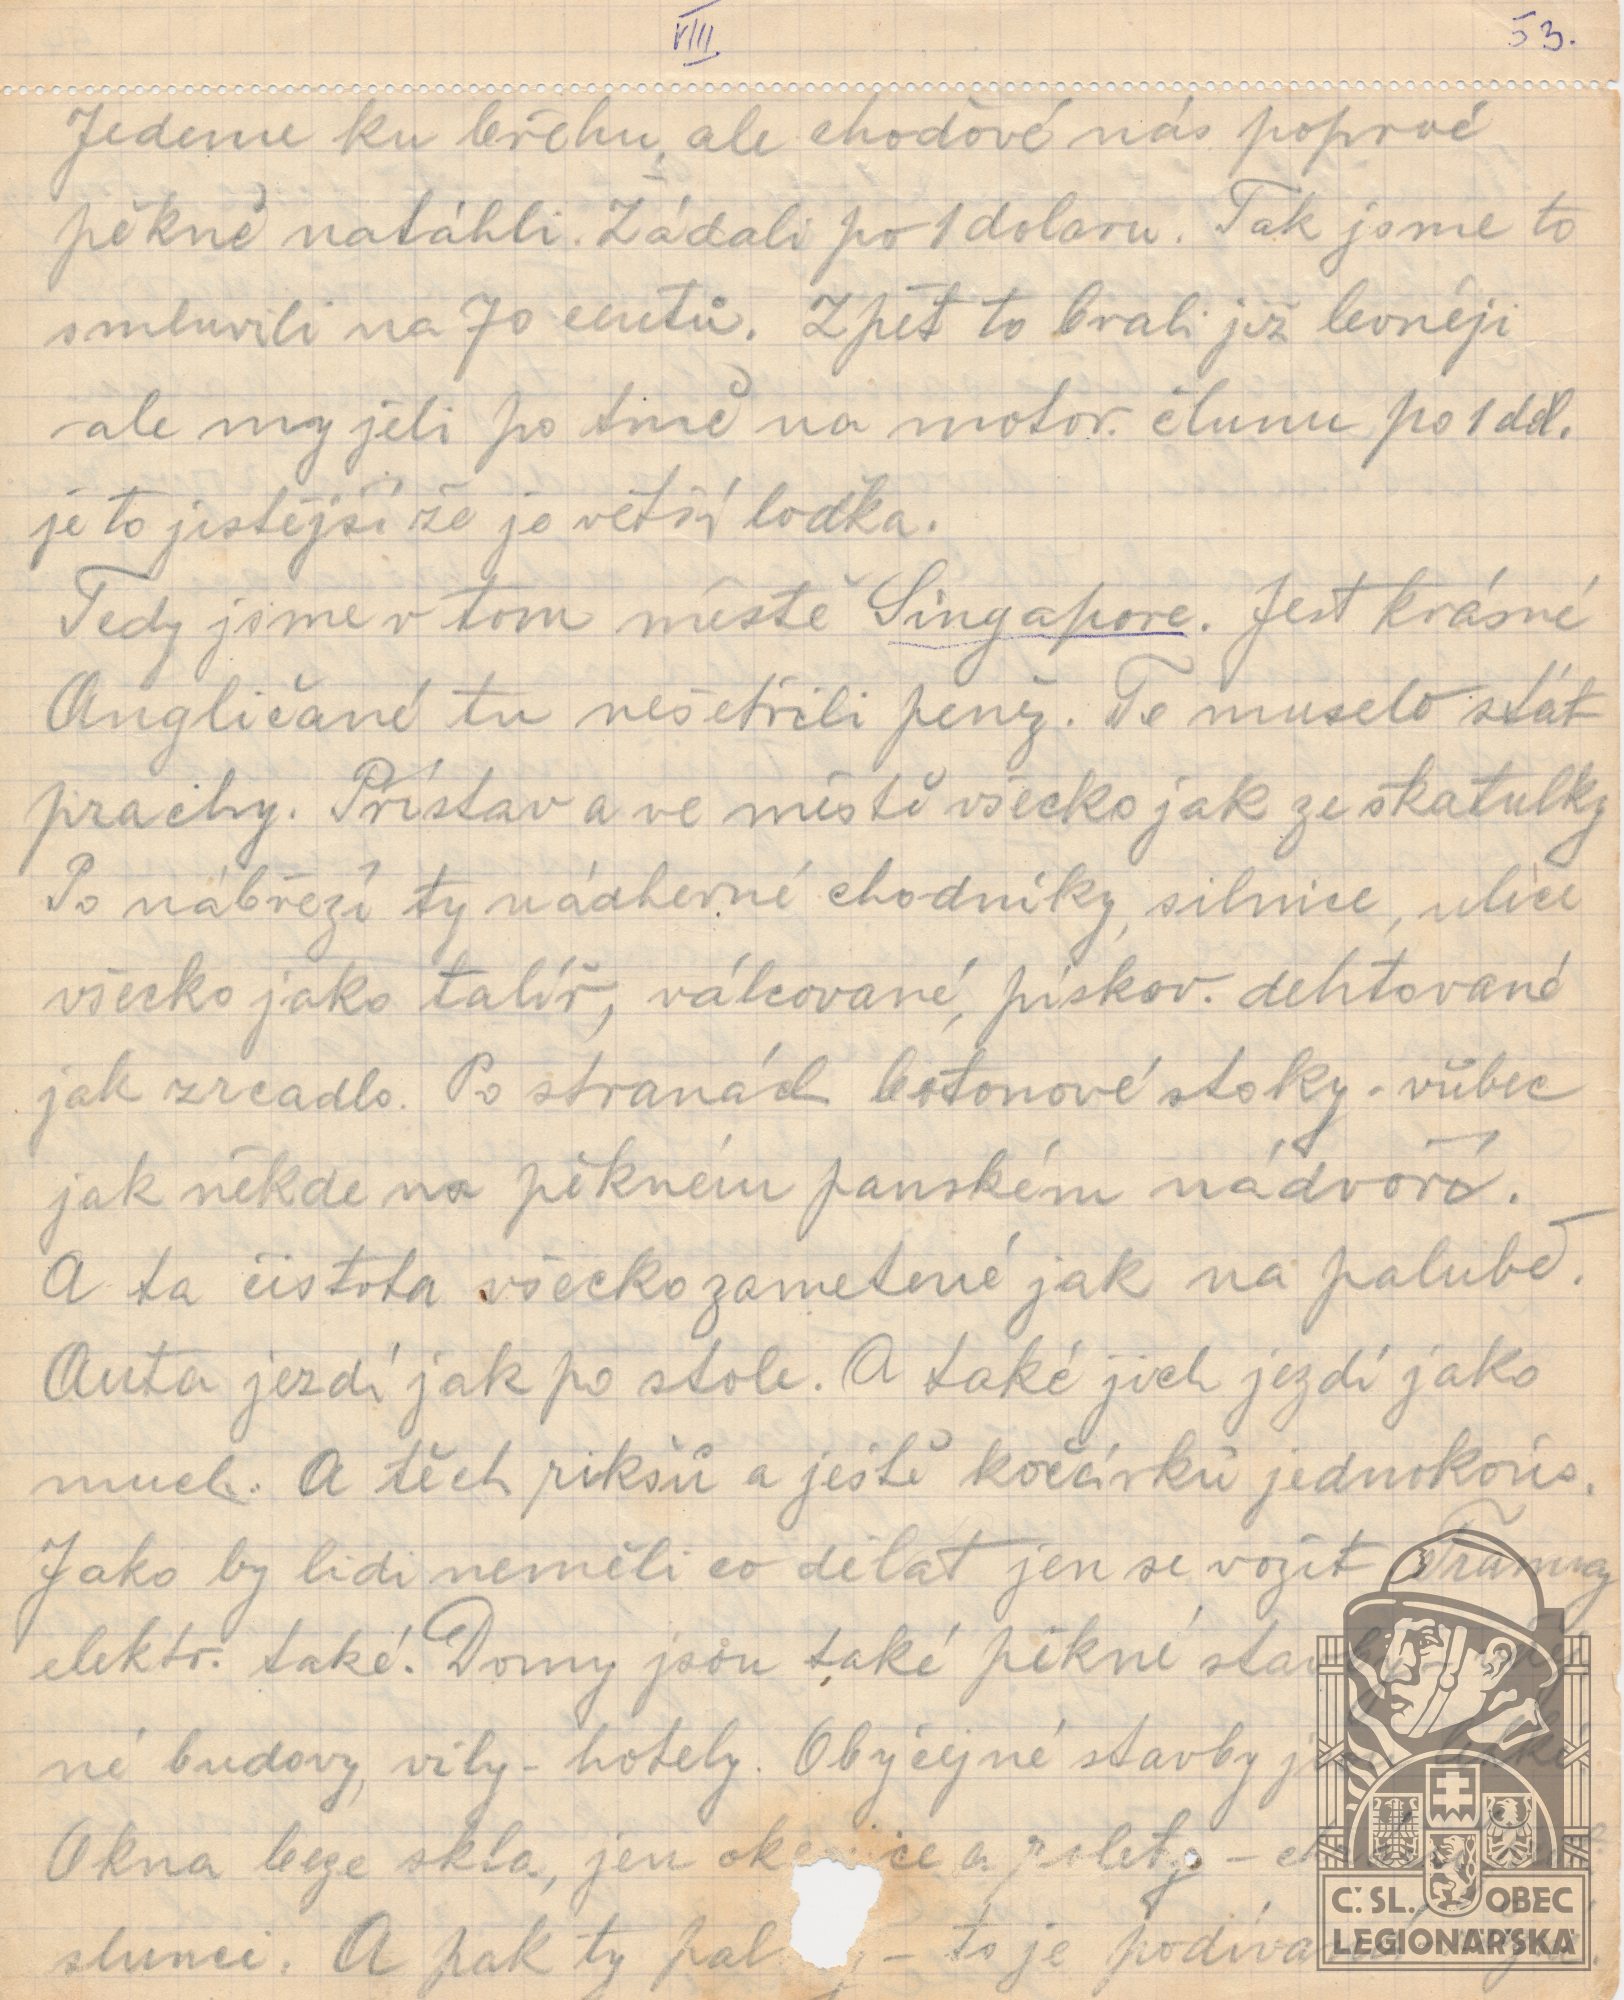 VIII.
53.
Jedeme ku břehu, ale chodové nás poprvé
pěkně natáhli. Žádali po 1 dolaru. Tak jsme to
smluvili na 70 centů. Zpět to brali již levněji
ale my jeli po tmě na motor. člunu po 1 dol.
je to jistější že je větší loďka.
Tedy jsme v tom městě Singapore. Jest krásné
Angličané tu nešetřili peněz. To muselo stát
prachy. Přístav a ve městě všecko jak ze škatulky
Po nábřeží ty nádherné chodníky, silnice, ulice
všecko jako talíř, válcované, pískov. dehtované
jak zrcadlo. Po stranách betonové stoky - vůbec
jak někde na pěkném panském nádvoří.
A ta čistota všecko zametené jak na palubě.
Auta jezdí jak po stole. A také jich jezdí jako
much. A těch rikšů a ještě kočárků jednokoňs.
Jako by lidi neměli co dělat jen se vozit Tramway
elektr. také. Domy jsou také pěkné
né budovy, vily - hotely. Obyčejné stavby
Okna beze skla, jen a rolety -
slunci. A pak ty - to je
Č. SL. OBEC
LEGIONÁŘSKÁ